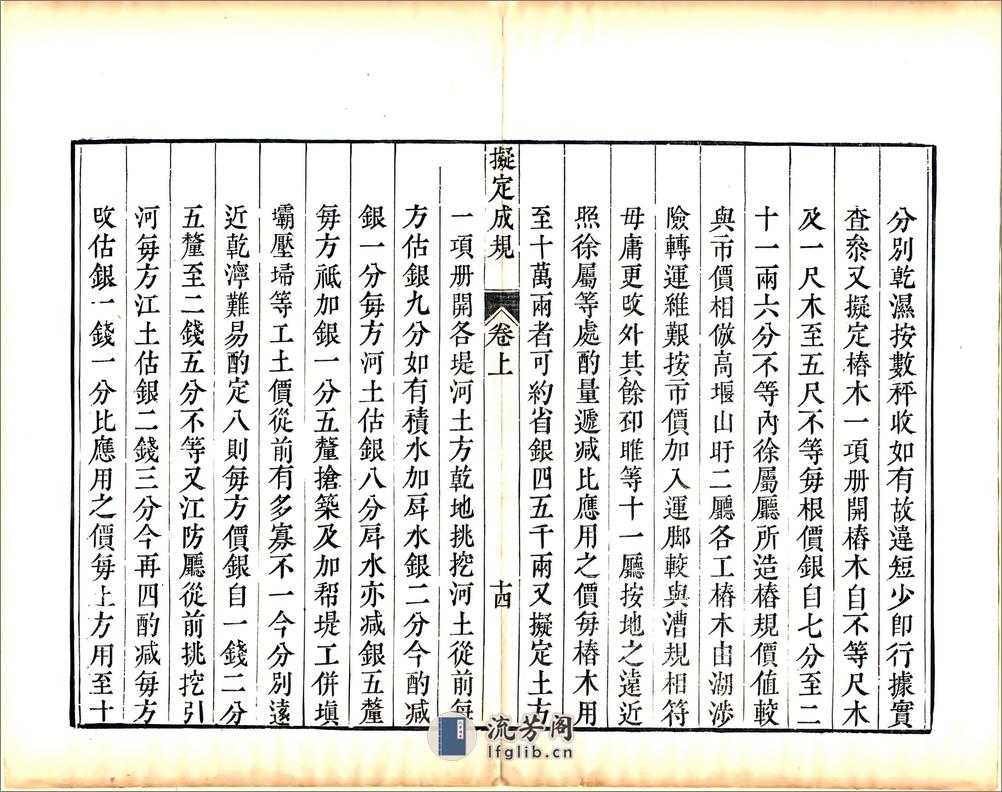 分別乾濕按數秤收如有故違短少卽行據實
查叅又擬定樁木一項册開樁木自不等尺木
及一尺木至五尺不等每根價銀自七分至二
十一兩六分不等內徐屬廳所造樁規價值較
與市價相倣高堰山盱二廳各工樁木由湖涉
險轉運維艱按市價加入運脚較與漕規相符
毋庸更改外其餘邳睢等十一廳按地之遠近
照徐屬等處酌量遞減比應用之價每樁木用
至十萬兩者可約省銀四五千兩又擬定土方
擬定成規 卷上 十四
一項册開各堤河土方乾地挑挖河土從前每
方估銀九分如有積水加戽水銀二分今酌減
銀一分每方河土估銀八分戽水亦減銀五釐
每方祗加銀一分五釐搶築及加帮堤工併塡
壩壓埽等工土價從前有多寡不一今分別遠
近乾濘難易酌定八則每方價銀自一錢二分
五釐至二錢五分不等又江防廳從前挑挖引
河每方江土估銀二錢三分今再四酌減每方
改估銀一錢一分比應用之價每土方用至十
流芳阁
lfglib.cn